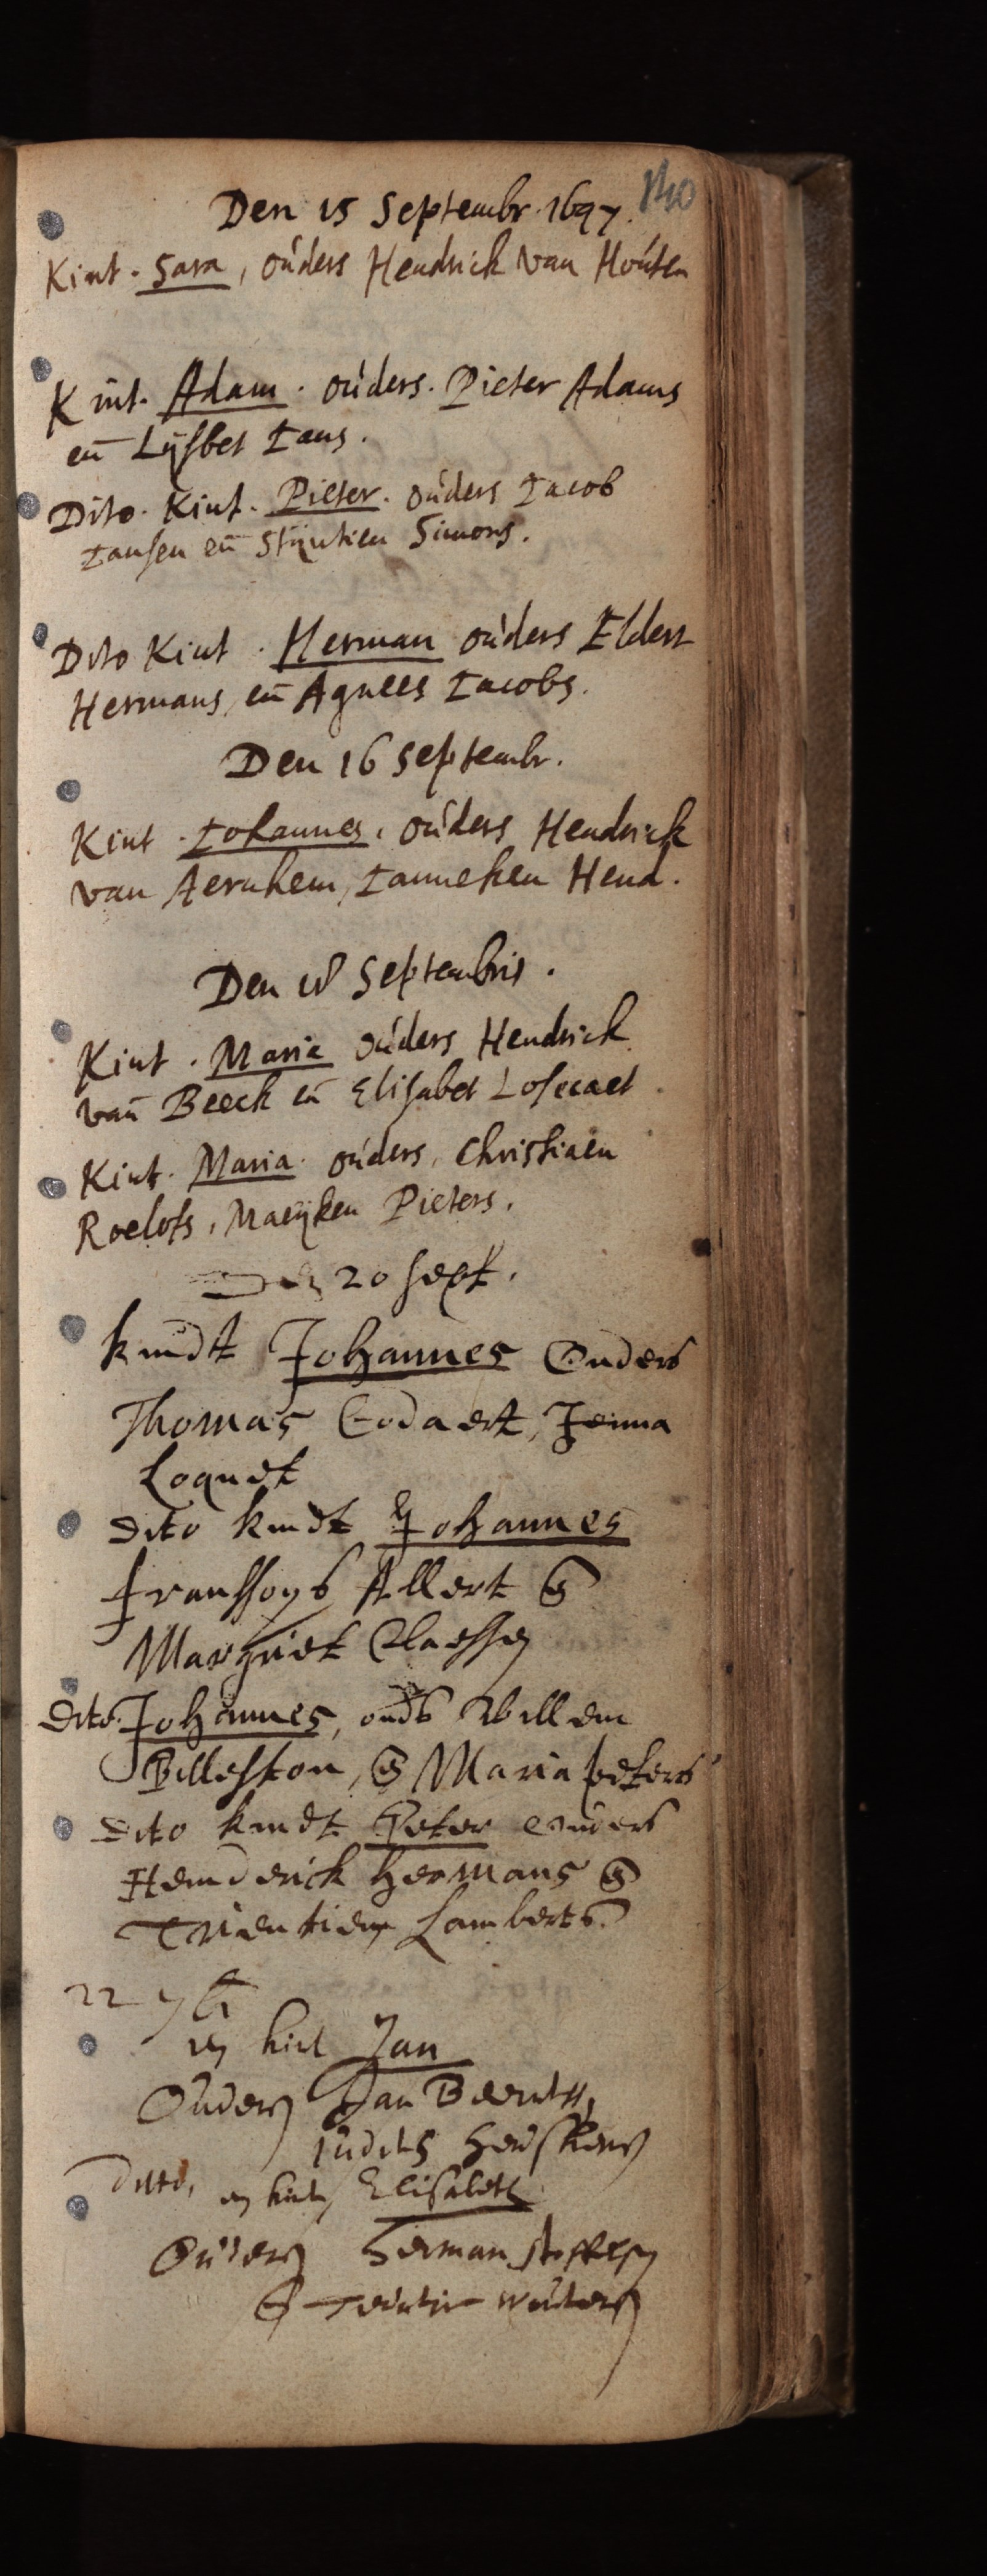 140
Den 15 Septembr. 1697.
Kint. Sara, ouders Hendrick van Houten
Kint. Adam. ouders. Pieter Adams
en̄ Lijsbet Jans.
Dito. Kint. Pieter. ouders Jacob
Jansen en̄ Stijntien Simons.
Dito Kint. Herman ouders Eldert
Hermans, en̄ Agnees Jacobs.
Den 16 Septembr.
Kint. Johannes, ouders Hendrick
van Aernhem, Janneken Hend.
Den 18 Septembris.
Kint. Maria ouders Hendrick
van Beeck en̄ Elisabet Losecaet
Kint. Maria. ouders, Christiaen
Roelofs, Maeijken Pieters.
Den 20 Sept.
kindt Johannes Ouders
Thomas Godaert, Jenna
Loquet
Dito kindt Johannes
franssoys Allert &
Margriet Claessen
Dito. Johannes, oud's Willem
Billeston, & Maria peters
Dito kindt Peter ouders
Henderick hermans &
Trientien Lamberts
22
en kint Jan
Ouders Jan Beernts,
Judith
Ditto, en kint Elisabeth
Ouders Herman Stoffelsen
& wouters